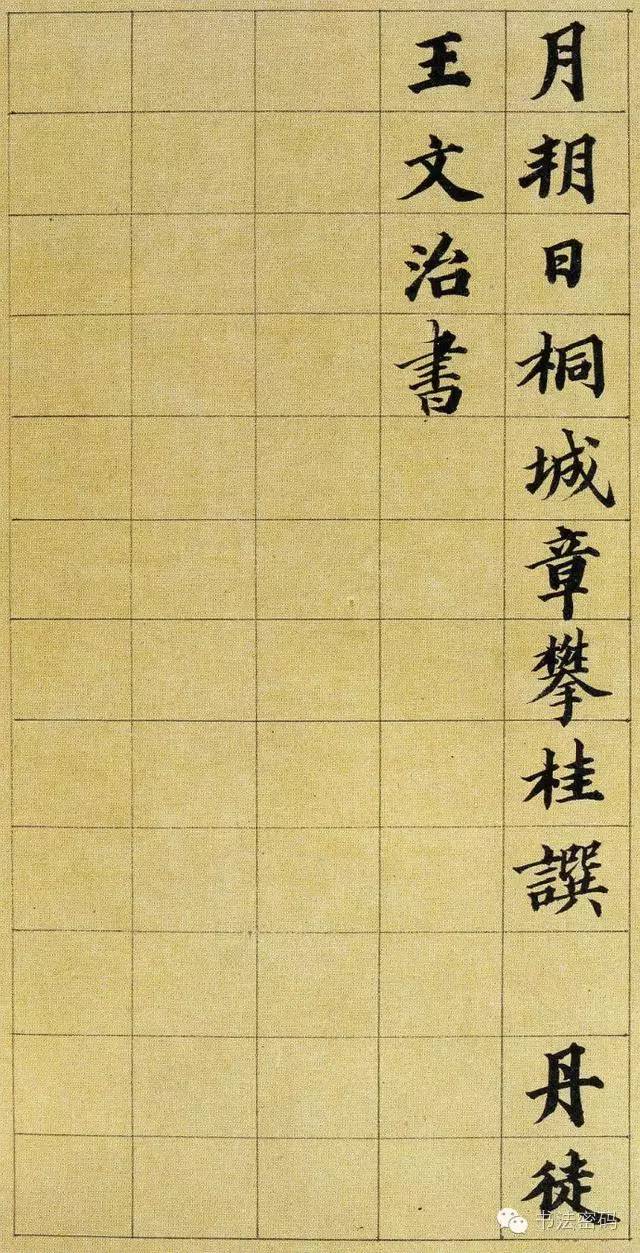 月朔日桐城章攀桂譔　丹徒
王文治書
书法密码